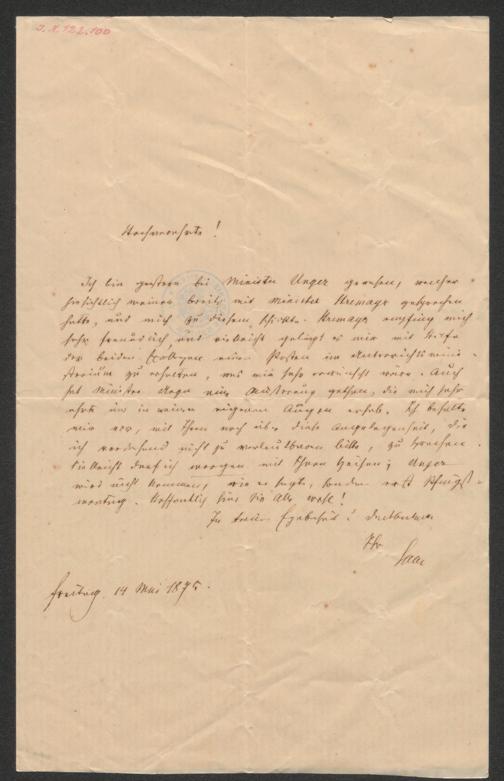 J.N. 122.100
Hochverehrte!
Ich bin gestern bei Minister Unger gewesen, welcher
hinsichtlich meiner bereits mit Minister Stremayr gesprochen
hatte, und mich zu diesem schickte. Stremayr empfing mich
sehr freundlich und vielleicht gelingt es mir mit Hilfe
der beiden Excellenzen einen Posten im Unterrichtsmini-
sterium zu erhalten, was mir sehr erwünscht wäre. Auch
hat Minister Unger eine Äußerung gethan, die mich sehr
ehrte und in meinen eigenen Augen erhob. Ich behalte
mir vor, mit Ihnen noch über diese Angelegenheit, die
ich vorderhand nicht zu verlautbaren bitte, zu sprechen.
Vielleicht darf ich morgen mit Ihnen speisen; Unger
wird nicht kommen, wie er sagte, sondern erst
Hoffentlich sind Sie Alle wohl!
In treuer Ergebenheit u. Dankbarkeit
Ihr
Saar
Freitag. 14 Mai 1875.